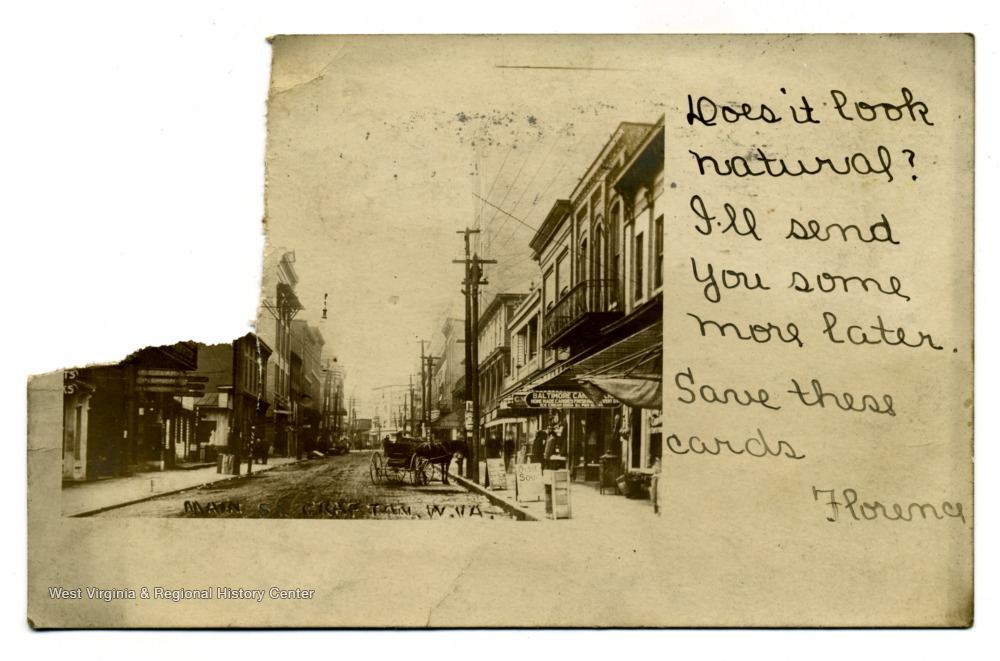 Does it look
natural?
I'll send
you some
more later.
Save these
cards
Florence
BALTIMORE CAN
HOME MADE CANDIES FRESH
MAIN ST. GRAFTON, W.VA.
West Virginia & Regional History Center